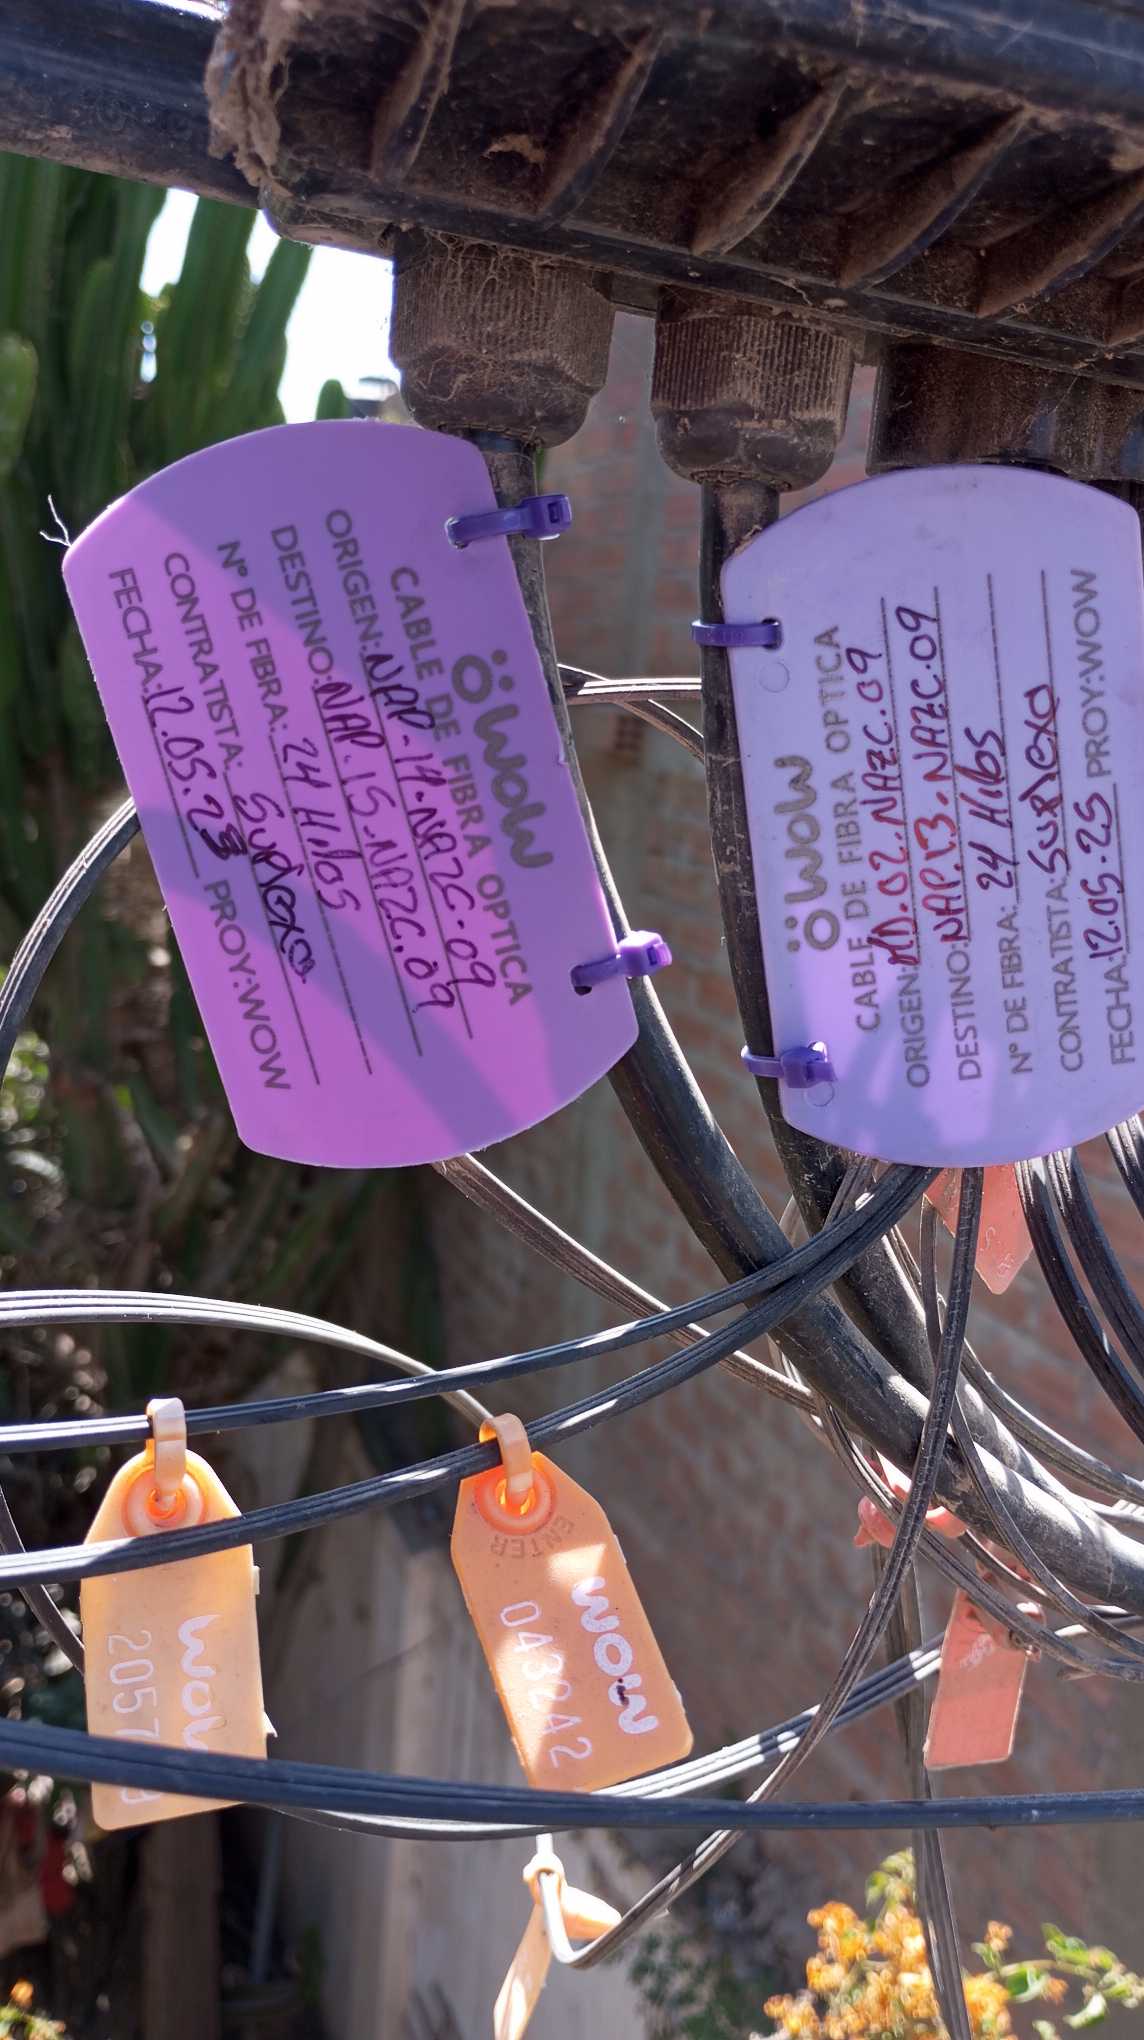 wow
CABLE DE FIBRA OPTICA
ORIGEN: NAP-14-NAZC-09
DESTINO: NAP.15-NAZC.09
Nº DE FIBRA: 24 Hilos
CONTRATISTA: Suplexa
FECHA: 12.05.25 PROY:WOW
wow
CABLE DE FIBRA OPTICA
ORIGEN: MD.02.NAZC.09
DESTINO: NAP.13.NAZC.09
Nº DE FIBRA: 24 Hilos
CONTRATISTA: Suplexa
FECHA: 12.05.25 PROY:WOW
WOW
ENTER
WOW
043242